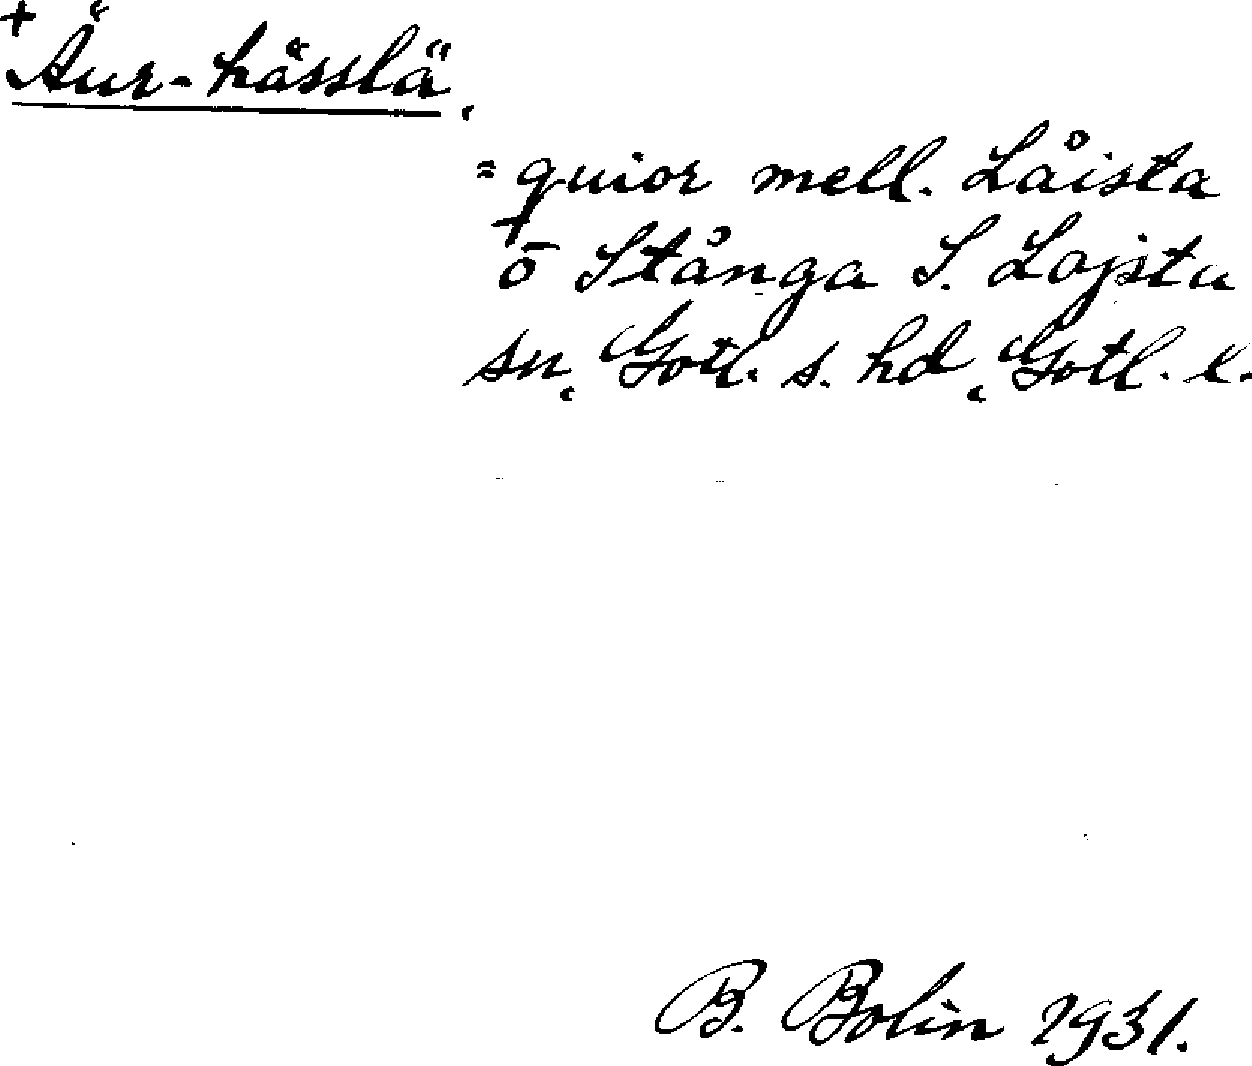 +
Äur-hässlä,
= quior mell. Låista
+
ō Stånga S. Lojsta
sn, Gotl. s. hd, Gotl. l.
B. Bolin 1931.